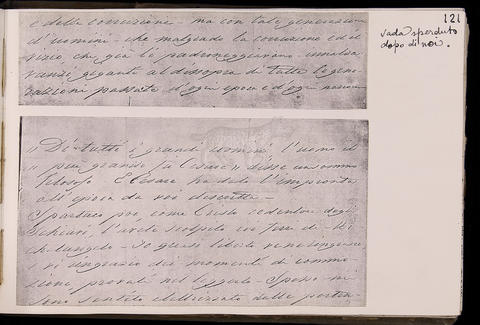 121
vada sperduto
dopo di noi.
e della corruzione - ma con tale generazione
d'uomini - che malgrado la corruzione ed il
vizio, che già lo padroneggiavano innalza
vansi giganti al disopra di tutte le gene
razioni passate d'ogni epoca e d'ogni nazione
"Di tutti i grandi uomini l'uomo il
" più grande fu Cesare" disse un sommo
filosofo E Cesare ha dato l'impronta
all'epoca da voi descritta -
Spartaco poi, come Cristo redentore degli
schiavi, l'avete scolpito con tocco di Mi
ch-langelo - Io quasi liberto ve ne ringrazio
e vi ringrazio dei momenti di commo
zioni provati nel leggerlo - Spesso mi
sono sentito elettrizzato dalle porten